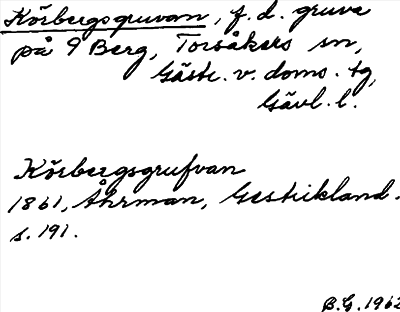 Körbergsgruvan, f.d. gruva
på 9 Berg, Torsåkers sn,
Gästr. v. doms. tg,
Gävl. l.
Körbergsgrufvan
1861, Åhrman, Gestrikland.
s. 191.
B.G. 1962